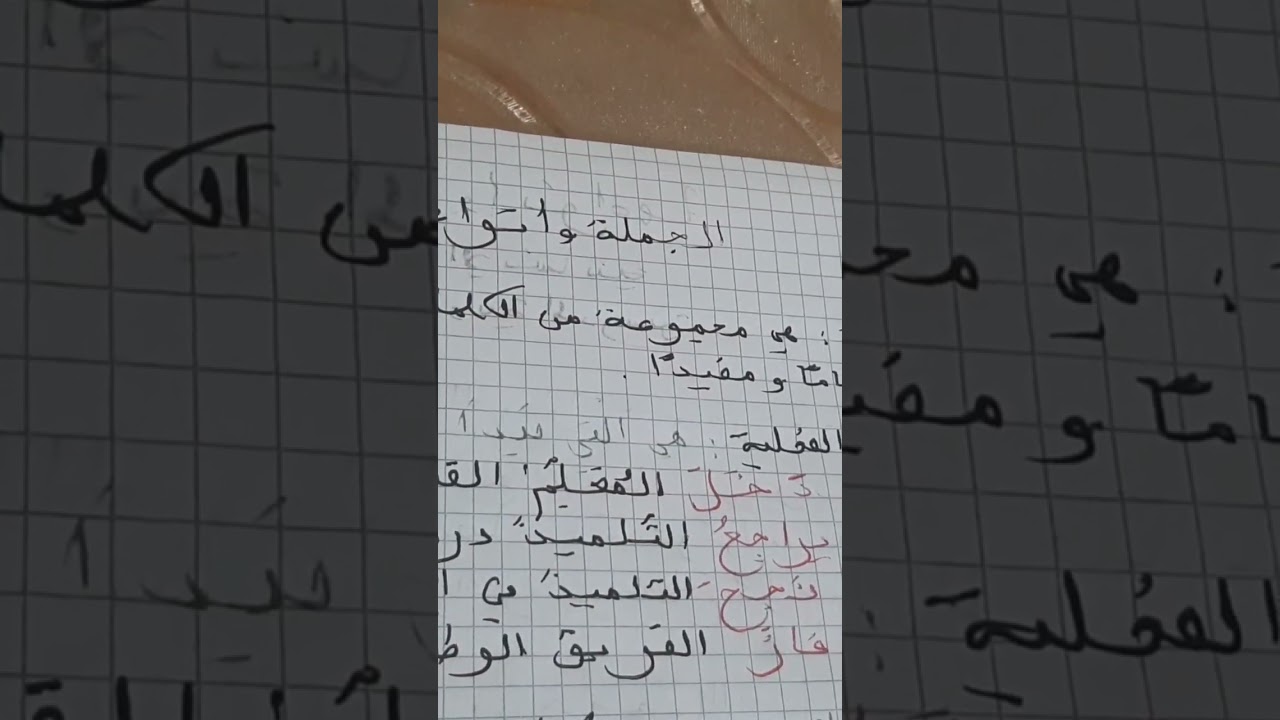 الجملة وأنواع
: هي مجموعة من الكلما
امّا و مفيدًا .
الفعلية : هي التي تبدأ
دَخَلَ المُعَلِّمُ الق
يُراجِعُ التِّلميذُ در
نَجَحَ التلميذُ في ا
فازَ الفَريقُ الوَط